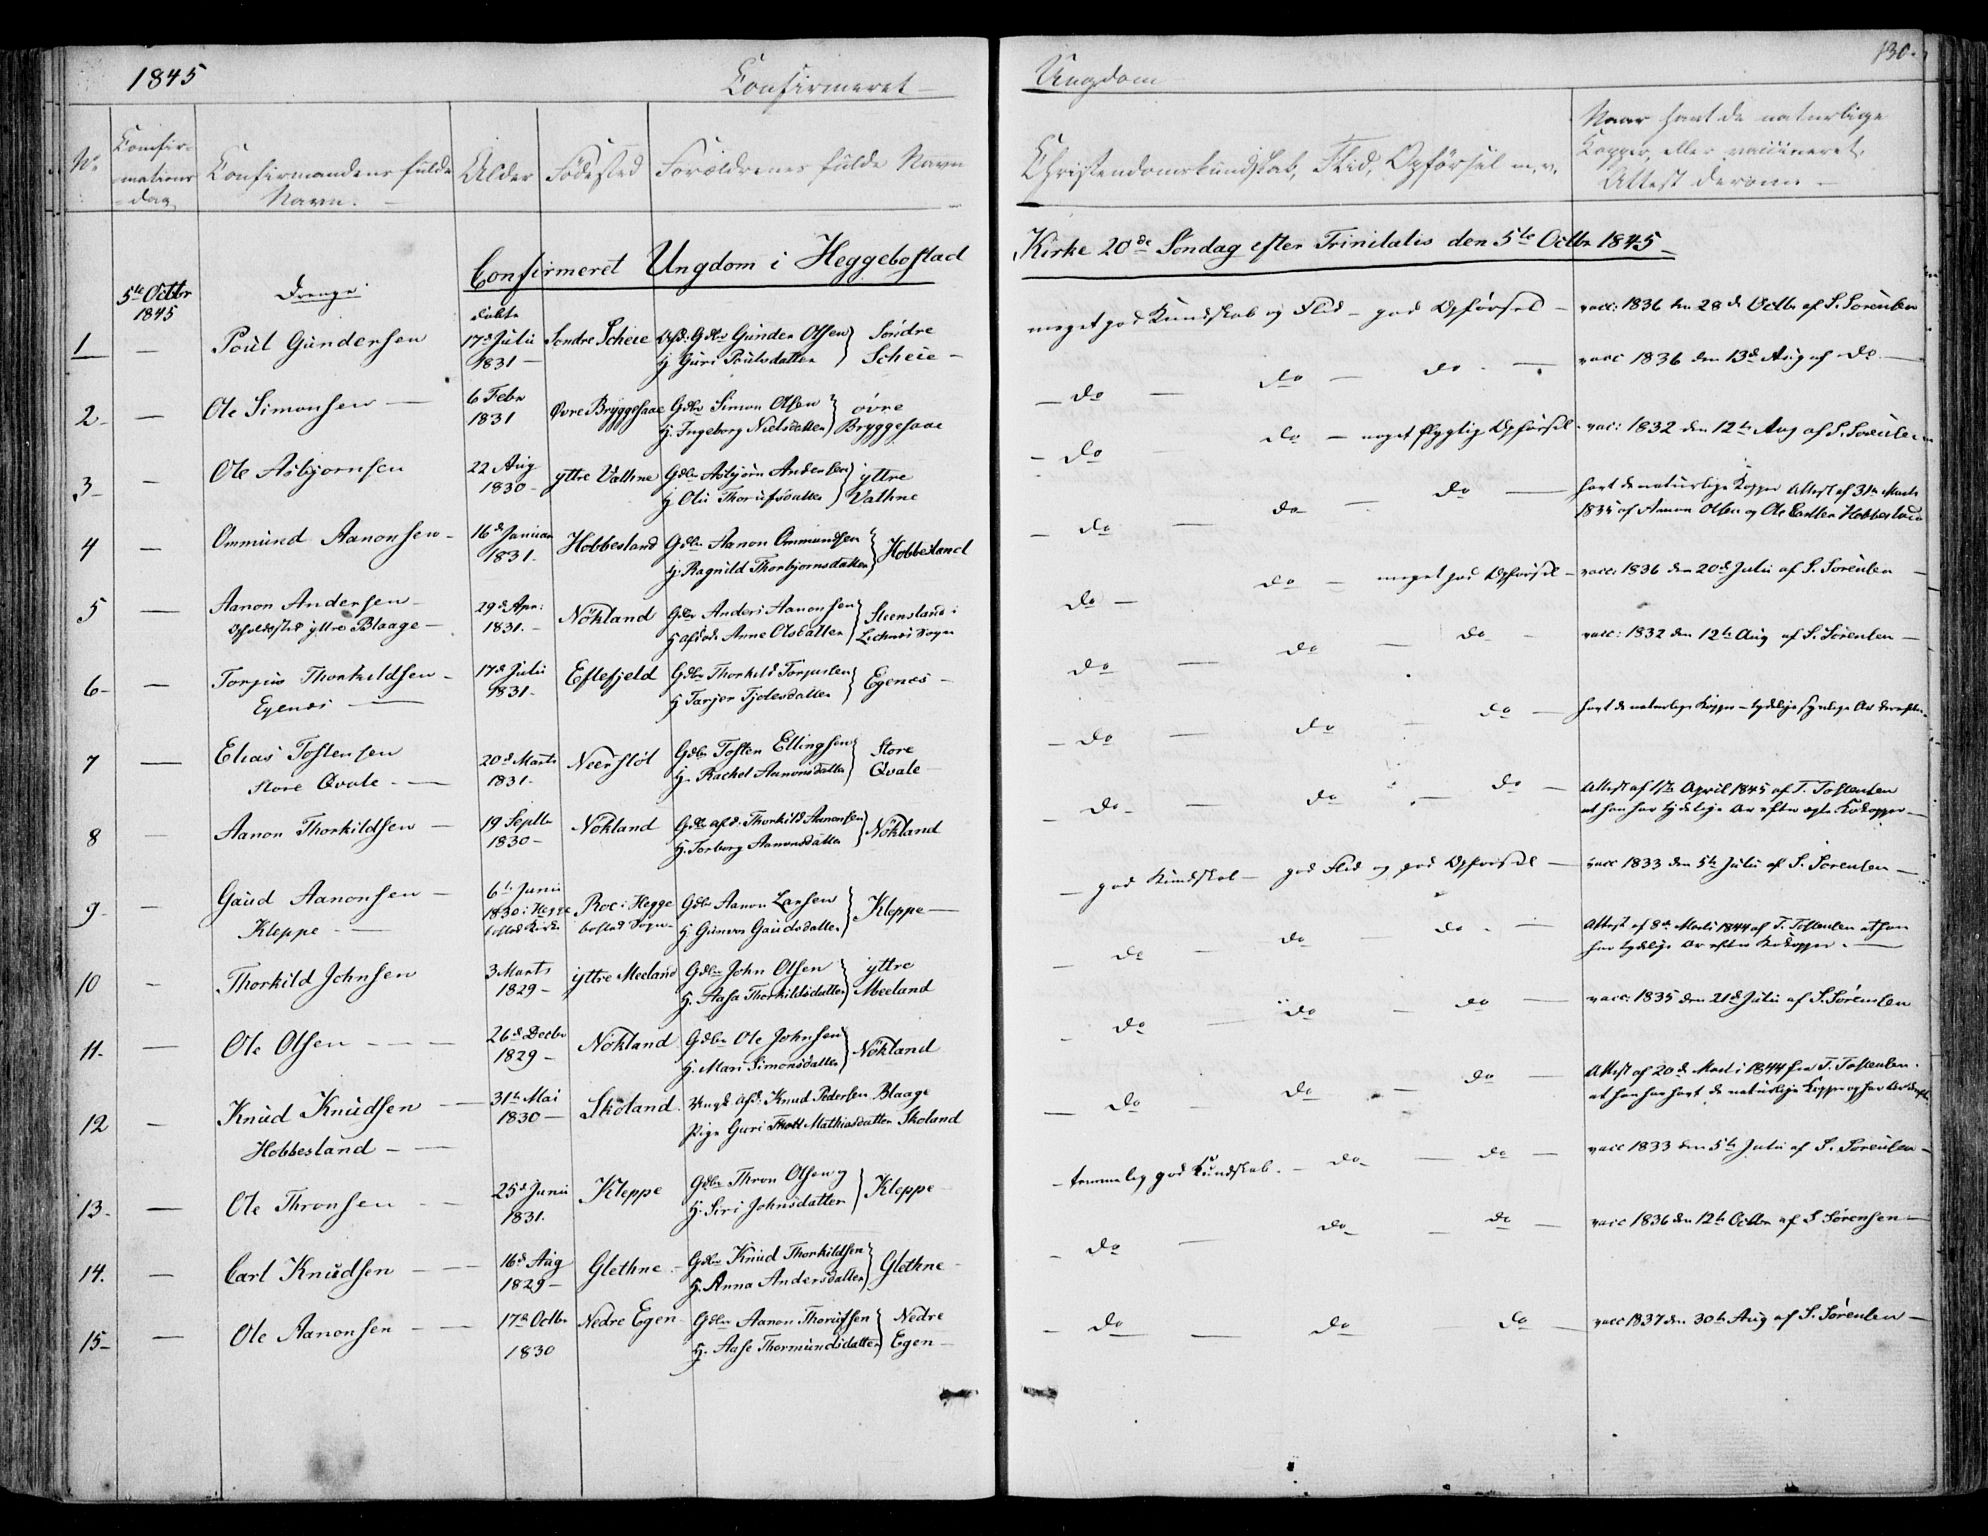 1845
Confirmeret
No
Confir-
mations
dag
Confirmandens fulde
Navn.
Alder
Födested
Forældrenes fulde Navn
Confirmeret Ungdom i Heggebostad
5te Octbr
1845
Drenge
døbte
1 — Poul Gundersen
17de Julii
1831 —
Sondre Scheie
Gdbr Gunder Olsen
H Guri Poulsdatter
Søndre
Scheie —
2 — Ole Simonsen —
6 Febr
1831
Øvre Bryggesaae
Gdbr Simon Olsen
H. Ingeborg Nielsdatter
øvre
Bryggesaae
3 — Ole Asbjornsen
22 Aug
1830 —
yttre Vathne
Gdbr Asbjørn Andersen
H Olü Thorufsdatter
yttre
Vathne
4 — Ommund Aanonsen —
16de Januar
1831.
Hobbesland
Gdbr Aanon Ommundsen
H. Ragnild Thorbjornsdatter
Hobbesland
5 — Aanon Andersen —
Opholdssted yttre Blaage —
29de Apr:
1831. —
Nökland
Gdbr Anders Aanonsen
H afdøde Anne Olsdatter
Steensland i
Sogn
6 — Torjus Thorkildsen —
Egenes —
17de Julii
1831 —
Eftefjeld
Gdbr Thorkild Torjussen
H Tarjer Tjolesdatter
Egenæs —
7 — Elias Tostensen
Store Qvale. —
20de Marts
1831 —
Neerstöl
Gdbr Tosten Ellingsen
H. Rachel Aanonsdatter
Store
Qvale —
8 — Aanon Thorkildsen —
19 Septbr
1830 —
Nökland
Gdbr afd. Thorkild Aanonsen
H. Torborg Aanonsdatter
Nökland
9 — Gaud Aanonsen —
Kleppe —
6te Junii
1830 i Hegge
bostad Kirke
Roe i Hegge
bostad Sogn
Gdbr Aanon Larsen
H Gunvor Gaudsdatter
Kleppe —
10 — Thorkild Johnsen
3 Marts
1829 —
yttre Meeland
Gdbr John Olsen
H. Aasa Thorkildsdatter
yttre
Meeland
11. — Ole Olsen —
26de Decbr
1829 —
Nökland
Gdbr Ole Johnsen
H. Mari Simonsdatter
Nökland
12 — Knud Knudsen —
Hobbesland —
31te Mai
1830 —
Skoland.
Ungk afd. Knud Pedersen Blaage
Pige Guri Mathiasdatter Skoland
13. — Ole Thronsen —
25de Junii
1831.
Kleppe
Gdbr Thron Olsen og
H. Siri Johnsdatter
Kleppe —
14. — Carl Knudsen —
16de Aug
1829 —
Glethne —
Gdbr Knud Thorkildsen
H. Anna Andersdatter
Glethne —
15 — Ole Aanonsen —
17de Octbr
1830
Nedre Egen
Gdbr Aanon Thorufsen
H. Aase Thormundsdatter
Nedre
Egen —
130.
Ungdom
Christendomskundskab, Flid, Opförsel m.v.
Naar havt de naturlige
Kopper, eller vaccineret.
Attest derom —
Kirke 20de Søndag efter Trinitatis den 5te Octbr 1845 —
meget god Kundskab og Flid — god Opførsel — vacc: 1836 den 28de Octbr af S. Sörensen
— do — do — do. — vacc 1836 den 13de Aug af do. —
— do — do — noget flygtig Opførsel — vac: 1832 den 12te Aug af S. Sörensen
— do — do — do — havt de naturlige Kopper Attest af 31te Marts
1835 af Aanon Olsen og Ole Hobbesland
do — do — meget god Opførsel — vacc: 1836 den 20de Julii af S. Sörensen —
do — do — do — vacc: 1832 den 12te Aug af S. Sörensen —
— do — do — do — havt de naturlige Kopper — tydelige synlige Ar derefter.
— do — do — do — Attest af April 1845 af T. Tostensen
at han har tydelige Ar efter Kokopper —
— god Kundskab — god Flid og god Opførsel — vacc 1833 den 5te Julii af S. Sörensen —
— do — do — do. — Attest af 8de Marti 1844 af T. Tostensen at han
har tydelige Ar efter Kokopper. —
— do — do — do — vacc: 1835 den 21de Julii af S. Sörensen
— do — do — do — Attest af 20de Marti 1844 fra T. Tostensen.
at han har havt de naturlige Kopper og har Ar
— temmelig god Kundskab. — do — do — vacc 1833 den 5te Julii af S. Sörensen —
— do — do — do — vacc 1836 den 12te Octbr af S Sörensen —
— do — do — do — vacc 1837 den 30te Aug af S. Sörensen —